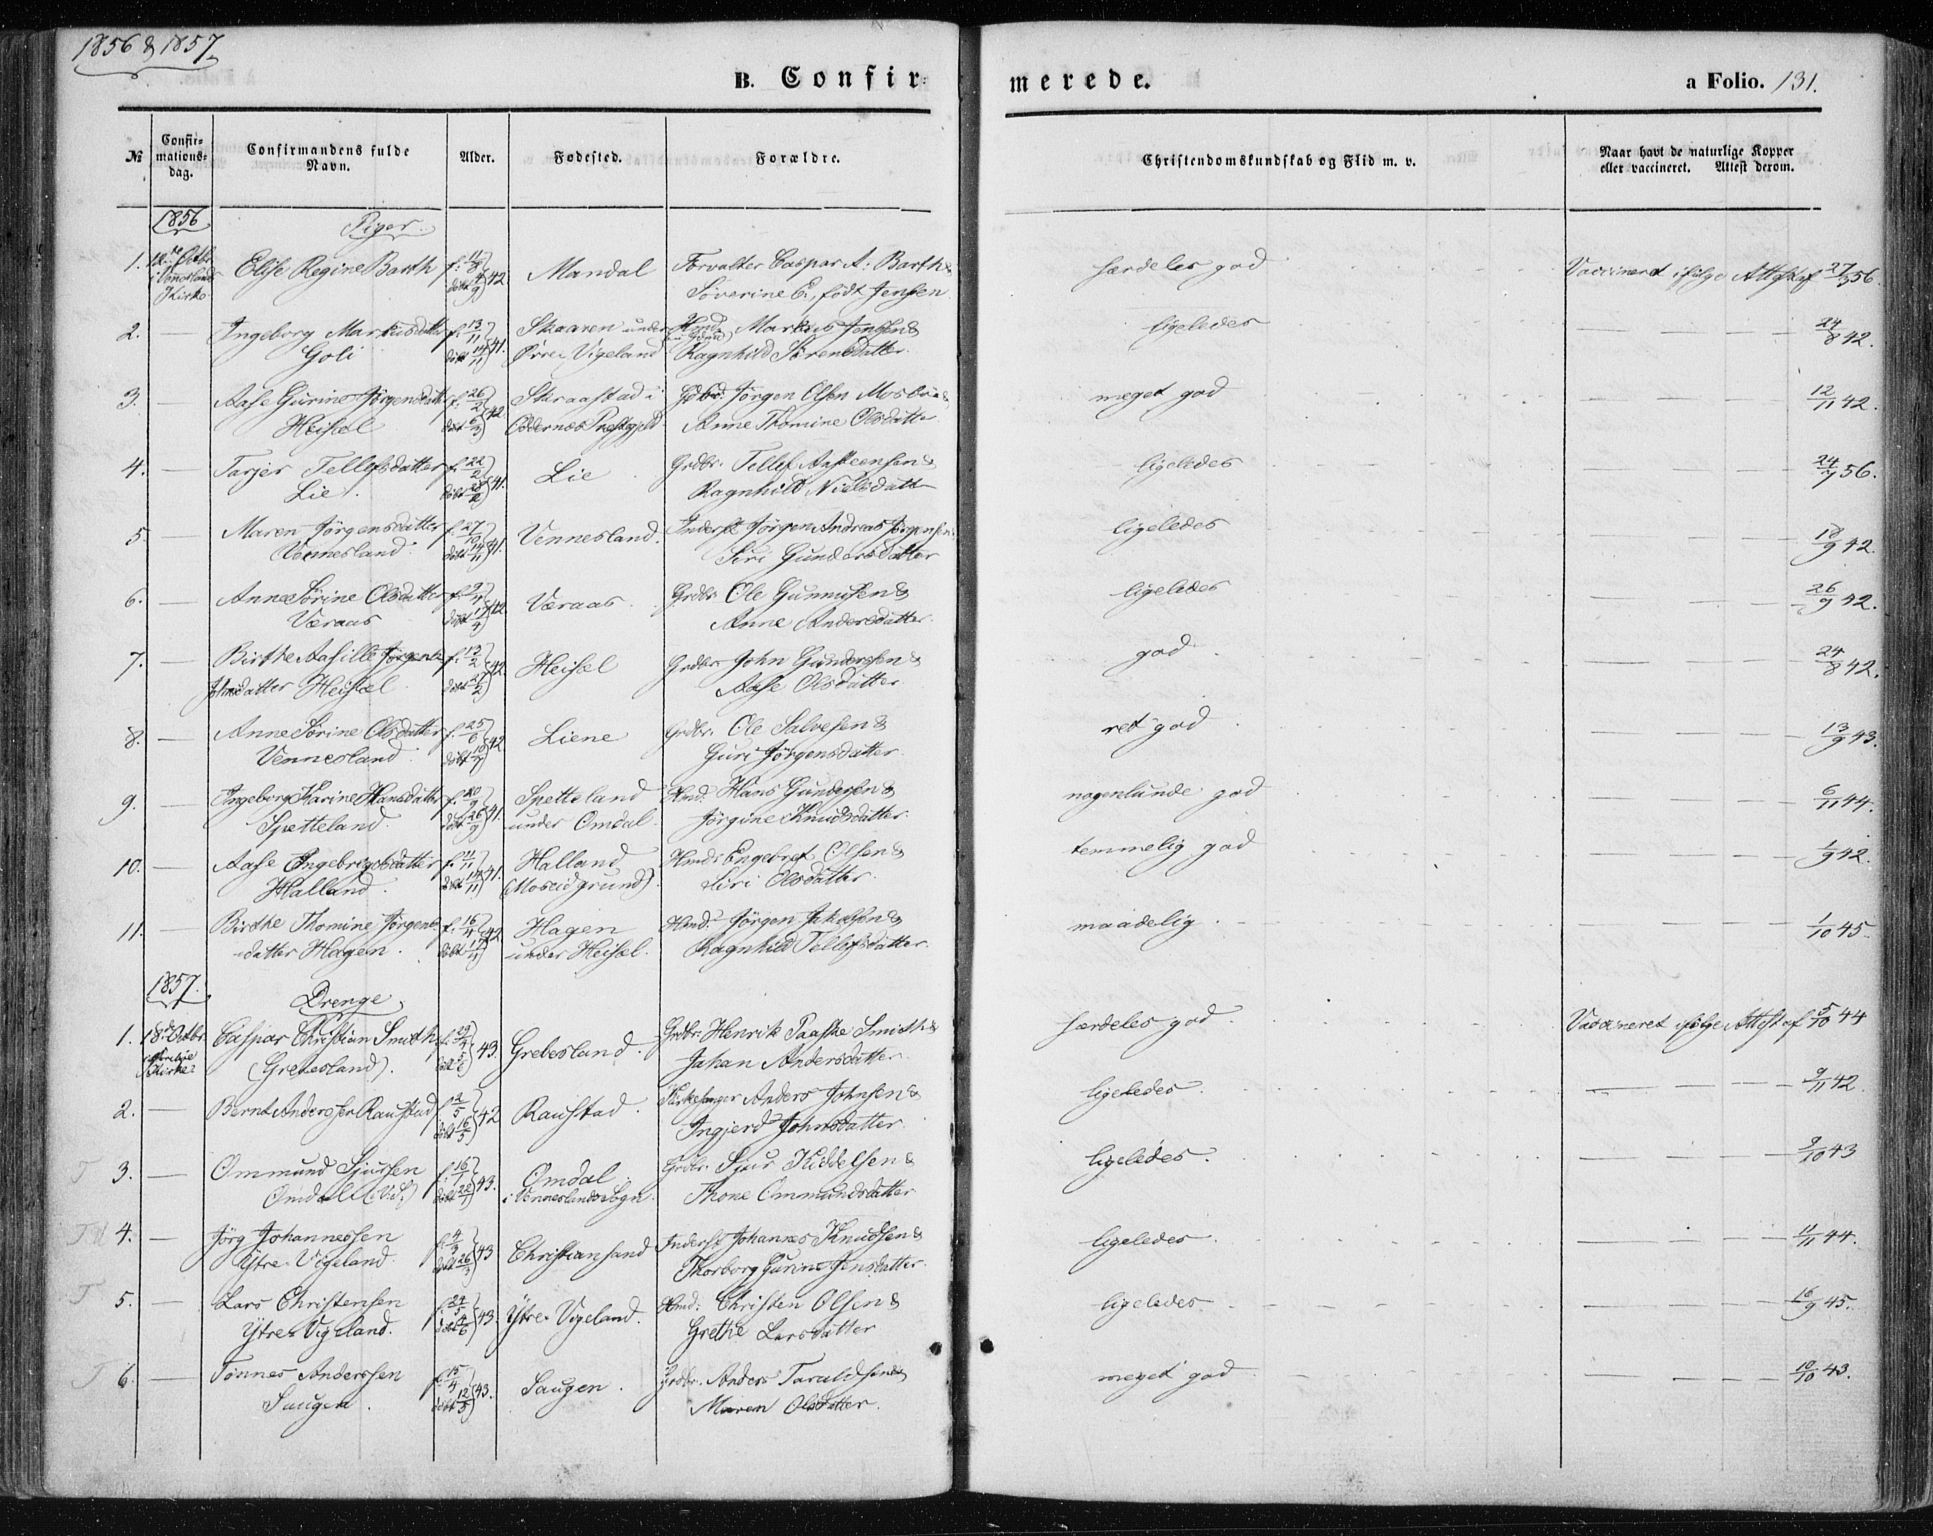 1856 & 1857
B. Confirmerede.
a Folio. 131.
№ Confirmationsdag. Confirmandens fulde Navn. Alder. Fødested. Forældre. Christendomskundskab og Flid m. v. Naar havt de naturlige Kopper eller vaccineret. Attest derom.
1856 Piger.
1. 12te Octbr. Elise Regine Barth Mandal Forvalter Caspar A. Barth & særdeles god Vaccineret ifølge Attest af 27/9 56.
Kirke Severine E., født Jensen
2. — Ingeborg Markusdatter f. 13/11 41. Skaaren under Hmd. Markus Jensen & ligeledes 24/8 42.
Goli døbt 14/11 Øvre Vigeland Ragnhild Sørensdatter.
3. Aase Gurine Jørgensdatter f. 26/2 42 Skraastad i Gdbr. Jørgen Olsen Mosbø & meget god 12/11 42.
Heisel døbt Oddernes Præstegjeld Anne Thomine Olsdatter
4. — Tarjer Tellefsdatter f. 22/2 41. Lie Grdbr. Tellef Aasteensen & ligeledes 24/7 56.
Lie. døbt Ragnhild Nielsdatter
5. — Maren Jørgensdatter f. 27/10 41. Vennesland. Inderst Jørgen Andreas Jørgensen ligeledes 18/9 42.
Vennesland døbt 14/11 Siri Gundersdatter
6. — Anne Sørine Olsdatter 42. Væraas. Grdbr. Ole Gunnusen & ligeledes 26/9 42.
Væraas døbt Anne Andersdatter.
7. — Birthe Aasille f. 12/2 42. Heisel Grdbr. John Gundersen & god 24/8 42.
Johnsdatter Heisel døbt 27/2 Aase Olsdatter
8. — Anne Sørine Olsdatter f. 25/6 42 Liene Grdbr. Ole Salvesen & ret god 13/9 43.
Vennesland. døbt Guri Jørgensdatter
9. Ingeborg Karine Hansdatter f. 20/9 41. Spetteland Hmd. Hans Gundersen & nogenlunde god 6/11 44.
Spetteland. døbt 26/9 under Omdal. Jørgine Knudsdatter.
10. — Aase Engebregtsdatter 41. Halland Hmd. Engebret Olsen & temmelig god 1/9 42.
Halland. døbt 14/11 (Moseidgrund). Siri Olsdatter.
11. — Birthe Thomine Jørgens- f. 16/4 42 Hagen Hmd. Jørgen Jakobsen & maadelig. 1/10 45.
datter Hagen. døbt under Heisel. Ragnhild Tellefsdatter.
1857. Drenge
1. 18de Octbr. Caspar Christian Smith 43. Grebesland. Grdbr. Henrik Paaske Smith & særdeles god. Vaccineret ifølge Attest af 5/10 44
Kirke (Grebesland). Johan Andersdatter
2. — Bernt Andersen Raustad f. 2/5 42 Raustad. Kirkesanger Anders Johnsen & ligeledes 9/11 42
døbt 16/5 Ingjerd Johnsdatter
3. — Ommund Sjursen f. 16/7 43. Omdal Grdbr. Sjur Kiddelsen & ligeledes. 9/10 43
Omdal i Venneslands Sogn. Thone Ommundsdatter
4. — Jørg Johannessen f. 4/3 43 Christiansand Inderst Johannes Knudsen & ligeledes 11/11 44.
Ytre Vigeland. døbt 26/3 Thorborg Gurine Jensdatter.
5. — Lars Christensen f. 24/5 43. Ytre Vigeland. Hmd. Christen Olsen & ligeledes 16/9 45.
Ytre Vigeland. døbt Grethe Larsdatter
6. — Tønnes Anderssen f. 15/4 43. Saugen. Grdbr. Anders Taraldsen & meget god 10/10 43.
Saugen. døbt 12/5 Maren Olsdatter.